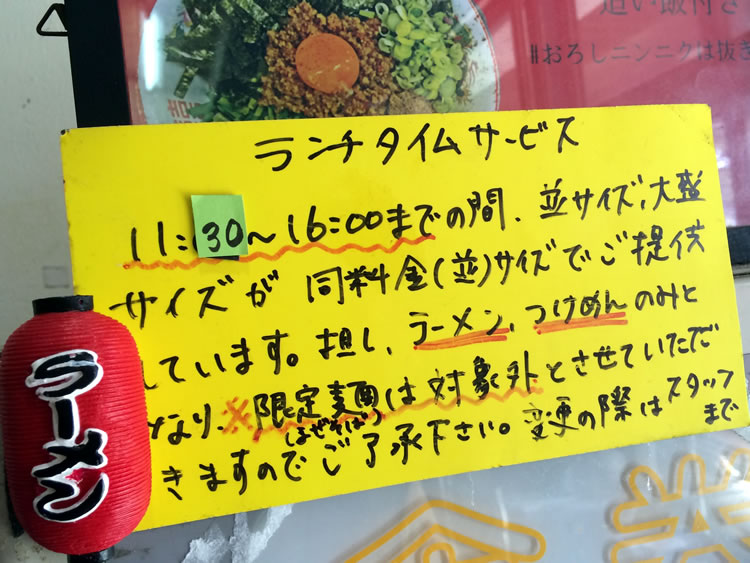 追い飯付き
#おろしニンニクは抜き
ランチタイムサービス
11:30〜16:00までの間、並サイズ、大盛
サイズが同料金(並)サイズでご提供
しています。担し、ラーメン、つけめんのみと
なり、※限定麺は対象外とさせていただ
(まぜそば)
きますのでご了承下さい。変更の際はスタッフ
まで
らーめん